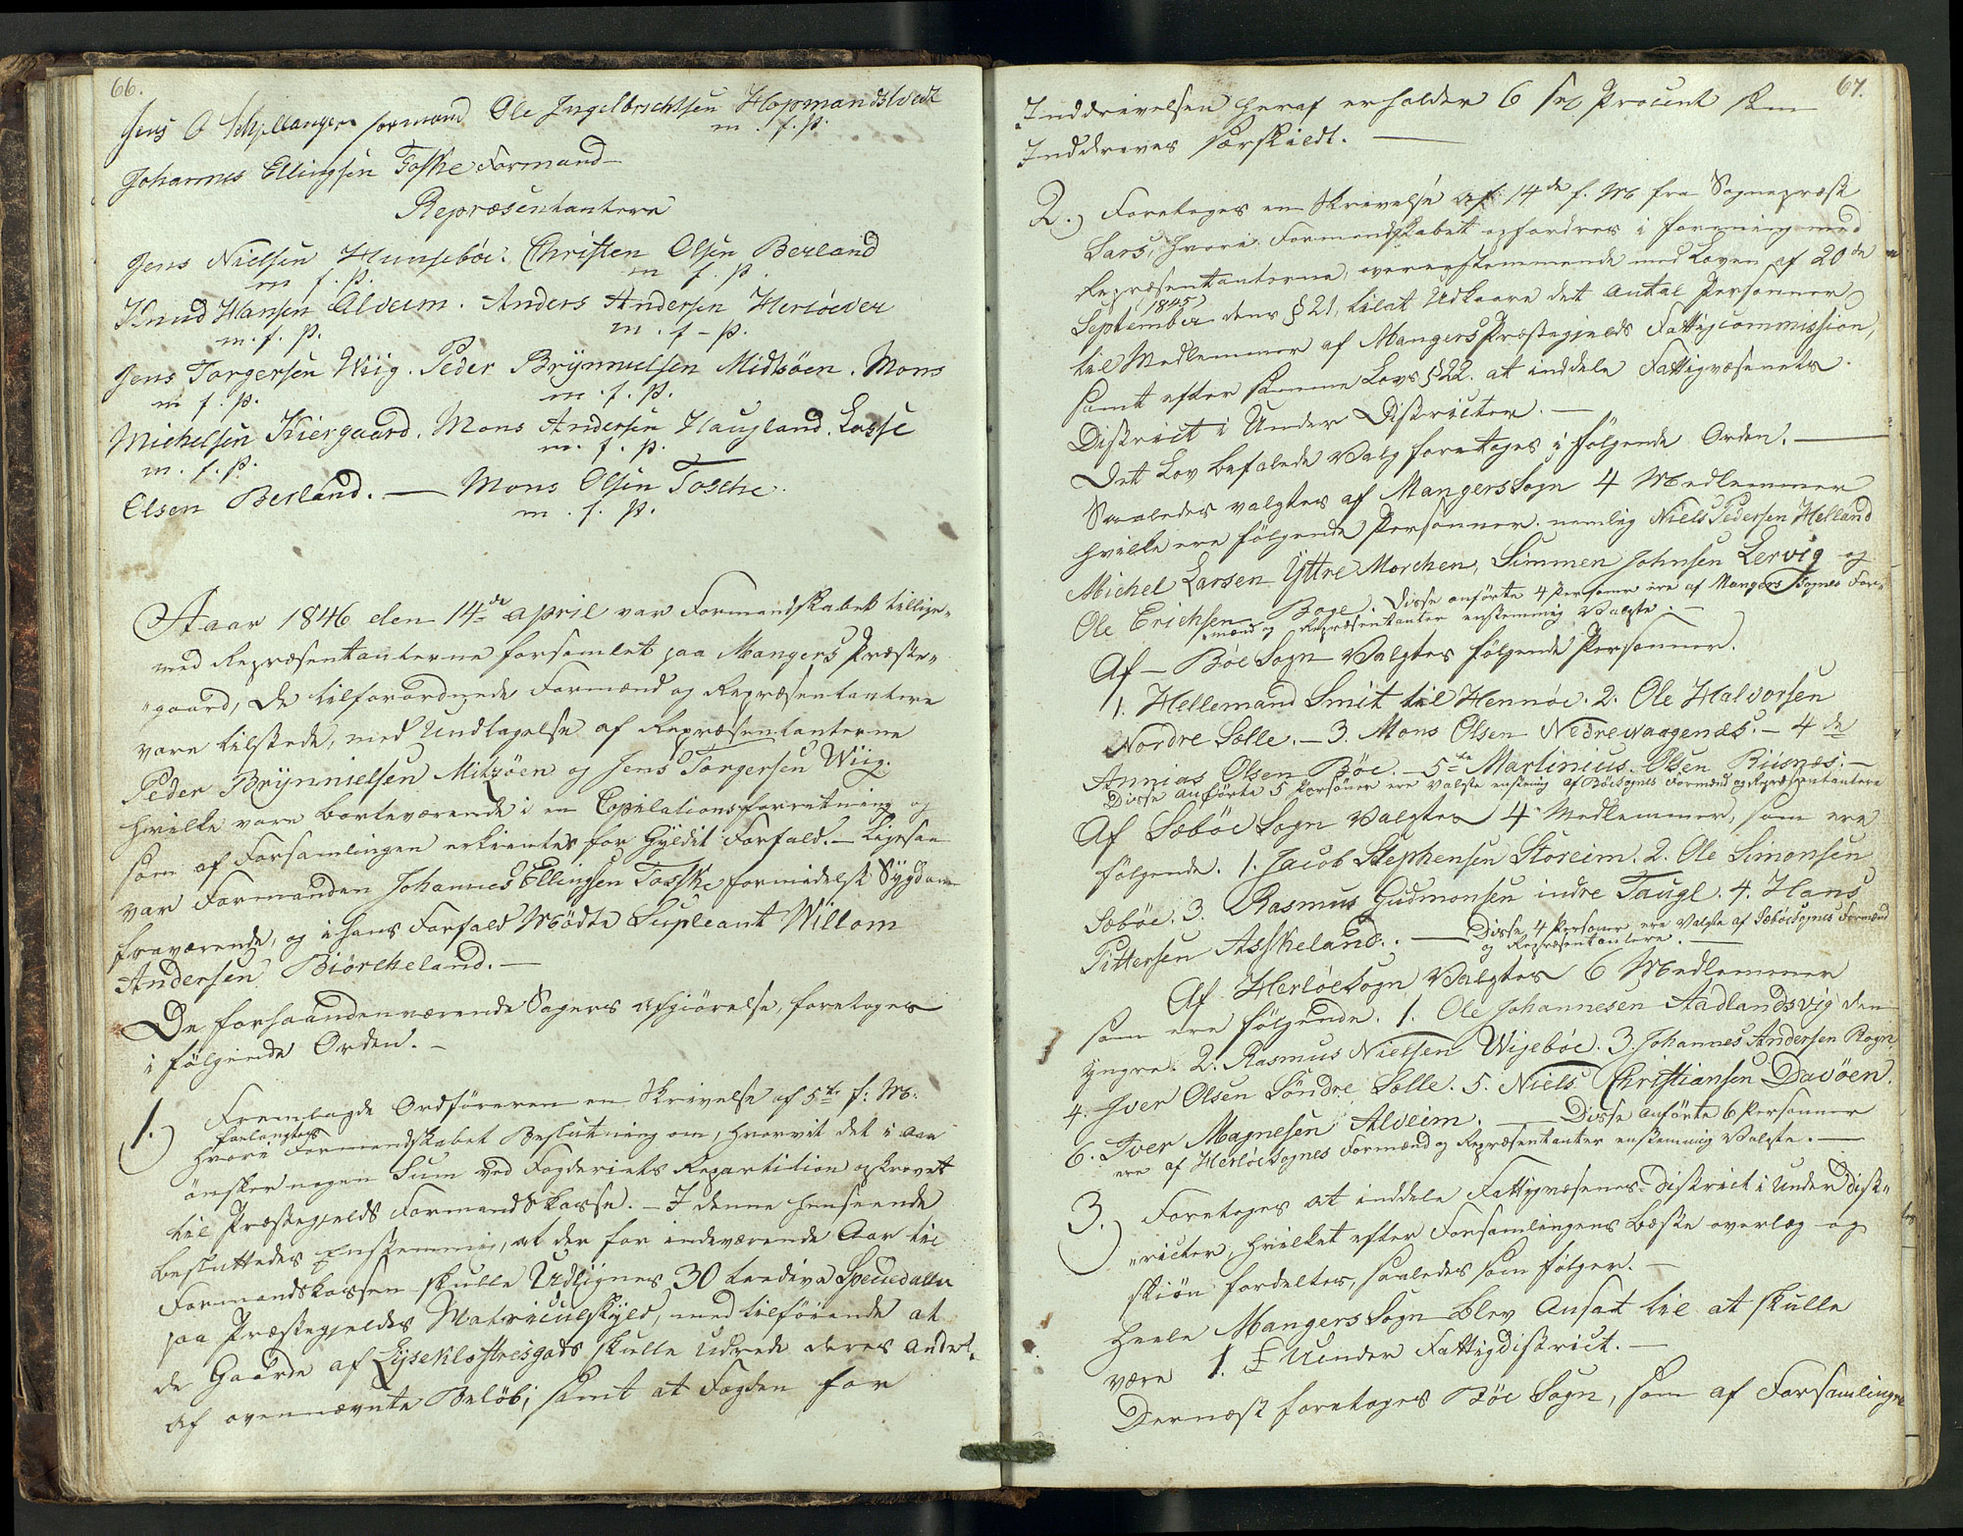 66.
Jens O Schjellanger formand Ole Ingelbrichtsen Hopmandslvedt
m. f. P.
Johannes Ellingsen Toske Formand
Repræsentantere
Jens Nielsen Hunseböe. Christen Olsen Berland
m f. P. m f. P.
Knud Hansen Alveim. Anders Andersen Herlöever
m. f. P. m. f. P.
Jens Torgersen Wiig. Peder Brÿnnielsen Midtöen. Mons
m f. P. m. f. P.
Michelsen Kiergaard. Mons Andersen Haugland. Lasse
m. f. P. m. f. P.
Olsen Berland. — Mons Olsen Tosche.
m. f. P.
Aaar 1846 den 14de april var Formandskabet tillige-
med Repræsentanterne forsamlet paa Mangers Præste-
gaard, De tilforordnede Formænd og Repræsentantere
vare tilstede, med Undtagelse af Repræsentanterne
Peder Brÿnnielsen Mitzöen og Jens Torgersen Wiig.
hvilke vare borteværende i en Copulationsforretning og
som af Forsamlingen erkientes for Gyldit Forfald. – Ligesaa
var Formanden Johannes Ellingsen Tosske formedelst Sygdom
fraværende, og i hans Forfald Mödte Supleant Willom
Andersen Biörcheland. —
De forhaandenværende Sagers Afgiörelse, foretoges
i fölgende Orden. –
1.) Fremlagde Ordföreren en Skrivelse af 5te f: M:
forlangtes
hvori Formandskabet Beslutning om, hvorvit det i Aar
önsker nogen Sum ved Fogderiets Repartition opkrævet
til Præstegjelds Formandskasse. – I denne henseende
besluttedes Enstemmig, at der for indeværende Aar til
Formandskassen skulle Udlignes 30 tredive Speciedaller
paa Præstegjeldes Matriculskÿld, med tilföiende at
de Gaarde af Lÿseklostresgods skulle Udrede deres Andel
af ovennævnte Belöb; samt at Fogden for
67.
Inddrivelsen heraf erholder 6 sex Procent som
Inddrives særskildt. —
2.) Foretoges en Skrivelse af 14de f. M. fra Sognepræst
Lars, hvori Formandskabet opfordres i forening med
Repræsentanterne, overenstemmende med Loven af 20de
1845
September dens § 21, til at Udkaare det Antal Personner
til Medlemmer af Mangers Præstegjelds Fattigcommission,
samt efter samme Lovs § 22. at inddele Fattigvæsenets
District i Under Districter. —
Det Lov befalede Valg foretoges i fölgende Orden. —
Saaledes valgtes af Mangers Sogn 4 Medlemmer
hvilke ere fölgende Personner. nemlig Niels Pedersen Helland
Michel Larsen Ÿttre Morchen, Simmen Johnsen Lervig og
Ole Erichsen Boge. Disse anförte 4 Personer ere af Mangers Sognes For-
mænd og Repræsentanter enstemmig Valgte. —
Af Böe Sogn Valgtes fölgende Personner.
1. Hellemand Smit til Hennöe. 2. Ole Halvorsen
Nordre Sælle. – 3. Mons Olsen Nedrewaagenæs. – 4de
Annias Olsen Böe. – 5te Martinius Olsen Biisnæs. –
Disse anförte 5 Personer ere Valgte enstemig af Böesognes Formænd og Repræsentantere
Af Sæböe Sogn Valgtes 4 Medlemmer, som ere
fölgende. 1. Jacob Stephensen Storeim. 2. Ole Simonsen
Sæböe. 3. Rasmus Gudmonsen indre Taugl. 4. Hans
Pittersen Asskeland. — Disse 4 Personer ere Valgte af Sæböesognes Formænd
og Repræsentantere. —
Af Herlöe Sogn Valgtes 6 Medlemmer
som ere fölgende. 1. Ole Johannesen Aadlandsvig den
yngre. 2. Rasmus Nielsen Wijeböe. 3. Johannes Andersen Rogn
4. Iver Olsen Söndre Sælle. 5. Niels Christiansen Davöen.
6. Iver Magnesen Alveim. — Disse anförte 6 Personner
ere af Herlöesognes Formænd og Repræsentanter enstemmig Valgte. —
3.) Foretoges at inddele Fattigvæsenes District i Under Dist-
ricter, hvilket efter Forsamlingens bæste overlæg og
skiön fordeltes, saaledes som fölger. —
Heele Mangers Sogn blev Ansat til at skulle
være 1. Et Under Fattigdistrict. —
Dernæst foretoges Böe Sogn, som af Forsamlingen